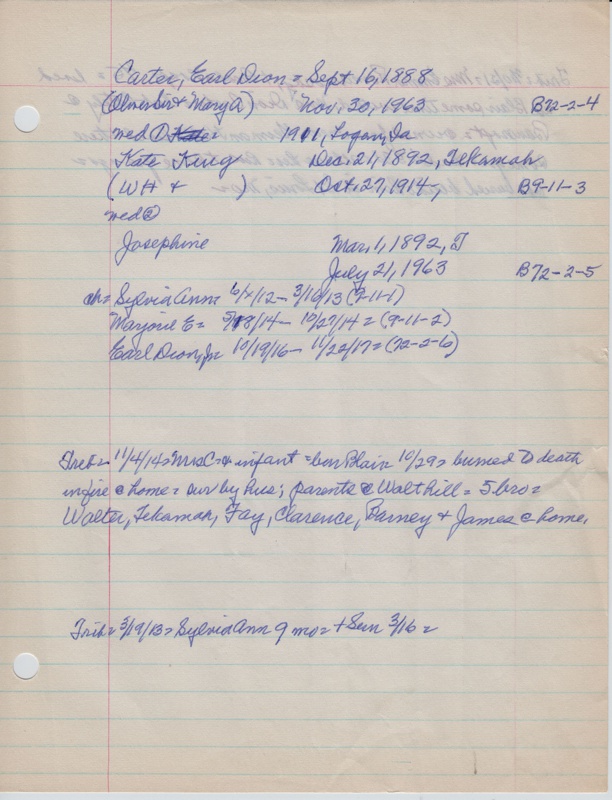 Carter, Earl Dion = Sept 16, 1888
(Oliver Sr + Mary A) Nov. 30, 1963 B72-2-4
med ① 1911, Logan, Ia
Kate King Dec. 21, 1892, Tekamah
(WH + ) Oct. 27, 1914, B9-11-3
med ②
Josephine Mar. 1, 1892, T
July 21, 1963 B72-2-5
ch = Sylvia Ann = 6/x/12 - 3/16/13 (9-11-1)
Marjorie E = 5/18/14 - 10/27/14 = (9-11-2)
Earl Dion, Jr = 10/19/16 - 11/22/17 = (72-2-6)
Trib = 11/4/14 = Mrs C = + infant = bur Blair 10/29 = burned to death
in fire @ home = sur by hus; parents @ Walthill = 5 bro =
Walter, Tekamah, Fay, Clarence, Barney + James @ home.
Trib = 3/19/13 = Sylvia Ann 9 mo = + Sun 3/16 =